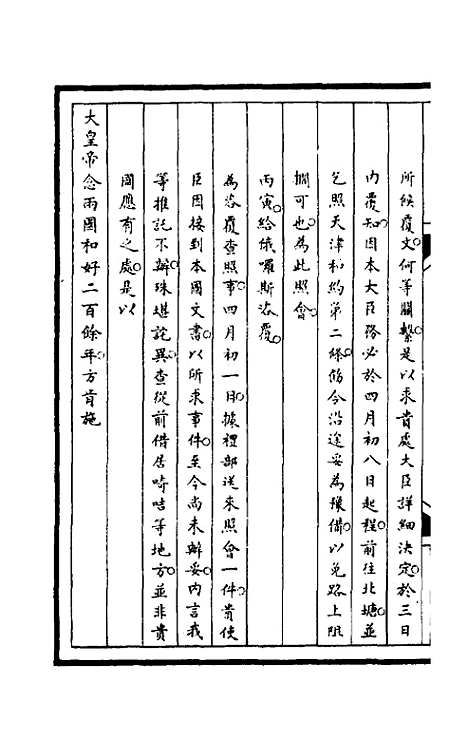 所候覆文。何等關繫。是以求貴處大臣詳細決定。於三日
內覆知。因本大臣務必於四月初八日起程。前往北塘。並
乞照天津和約第二條。飭令沿途妥為豫備。以免路上阻
擱可也。為此照會。
丙寅。給俄囉斯咨覆。
為咨覆查照事。四月初一日。據禮部送來照會一件。貴使
臣因接到本國文書。以所求事件。至今尚未辦妥。內言我
等推託不辦。殊堪詫異。查從前借居奇吉等地方。並非貴
國應有之處。是以
大皇帝念兩國和好二百餘年。方肯施